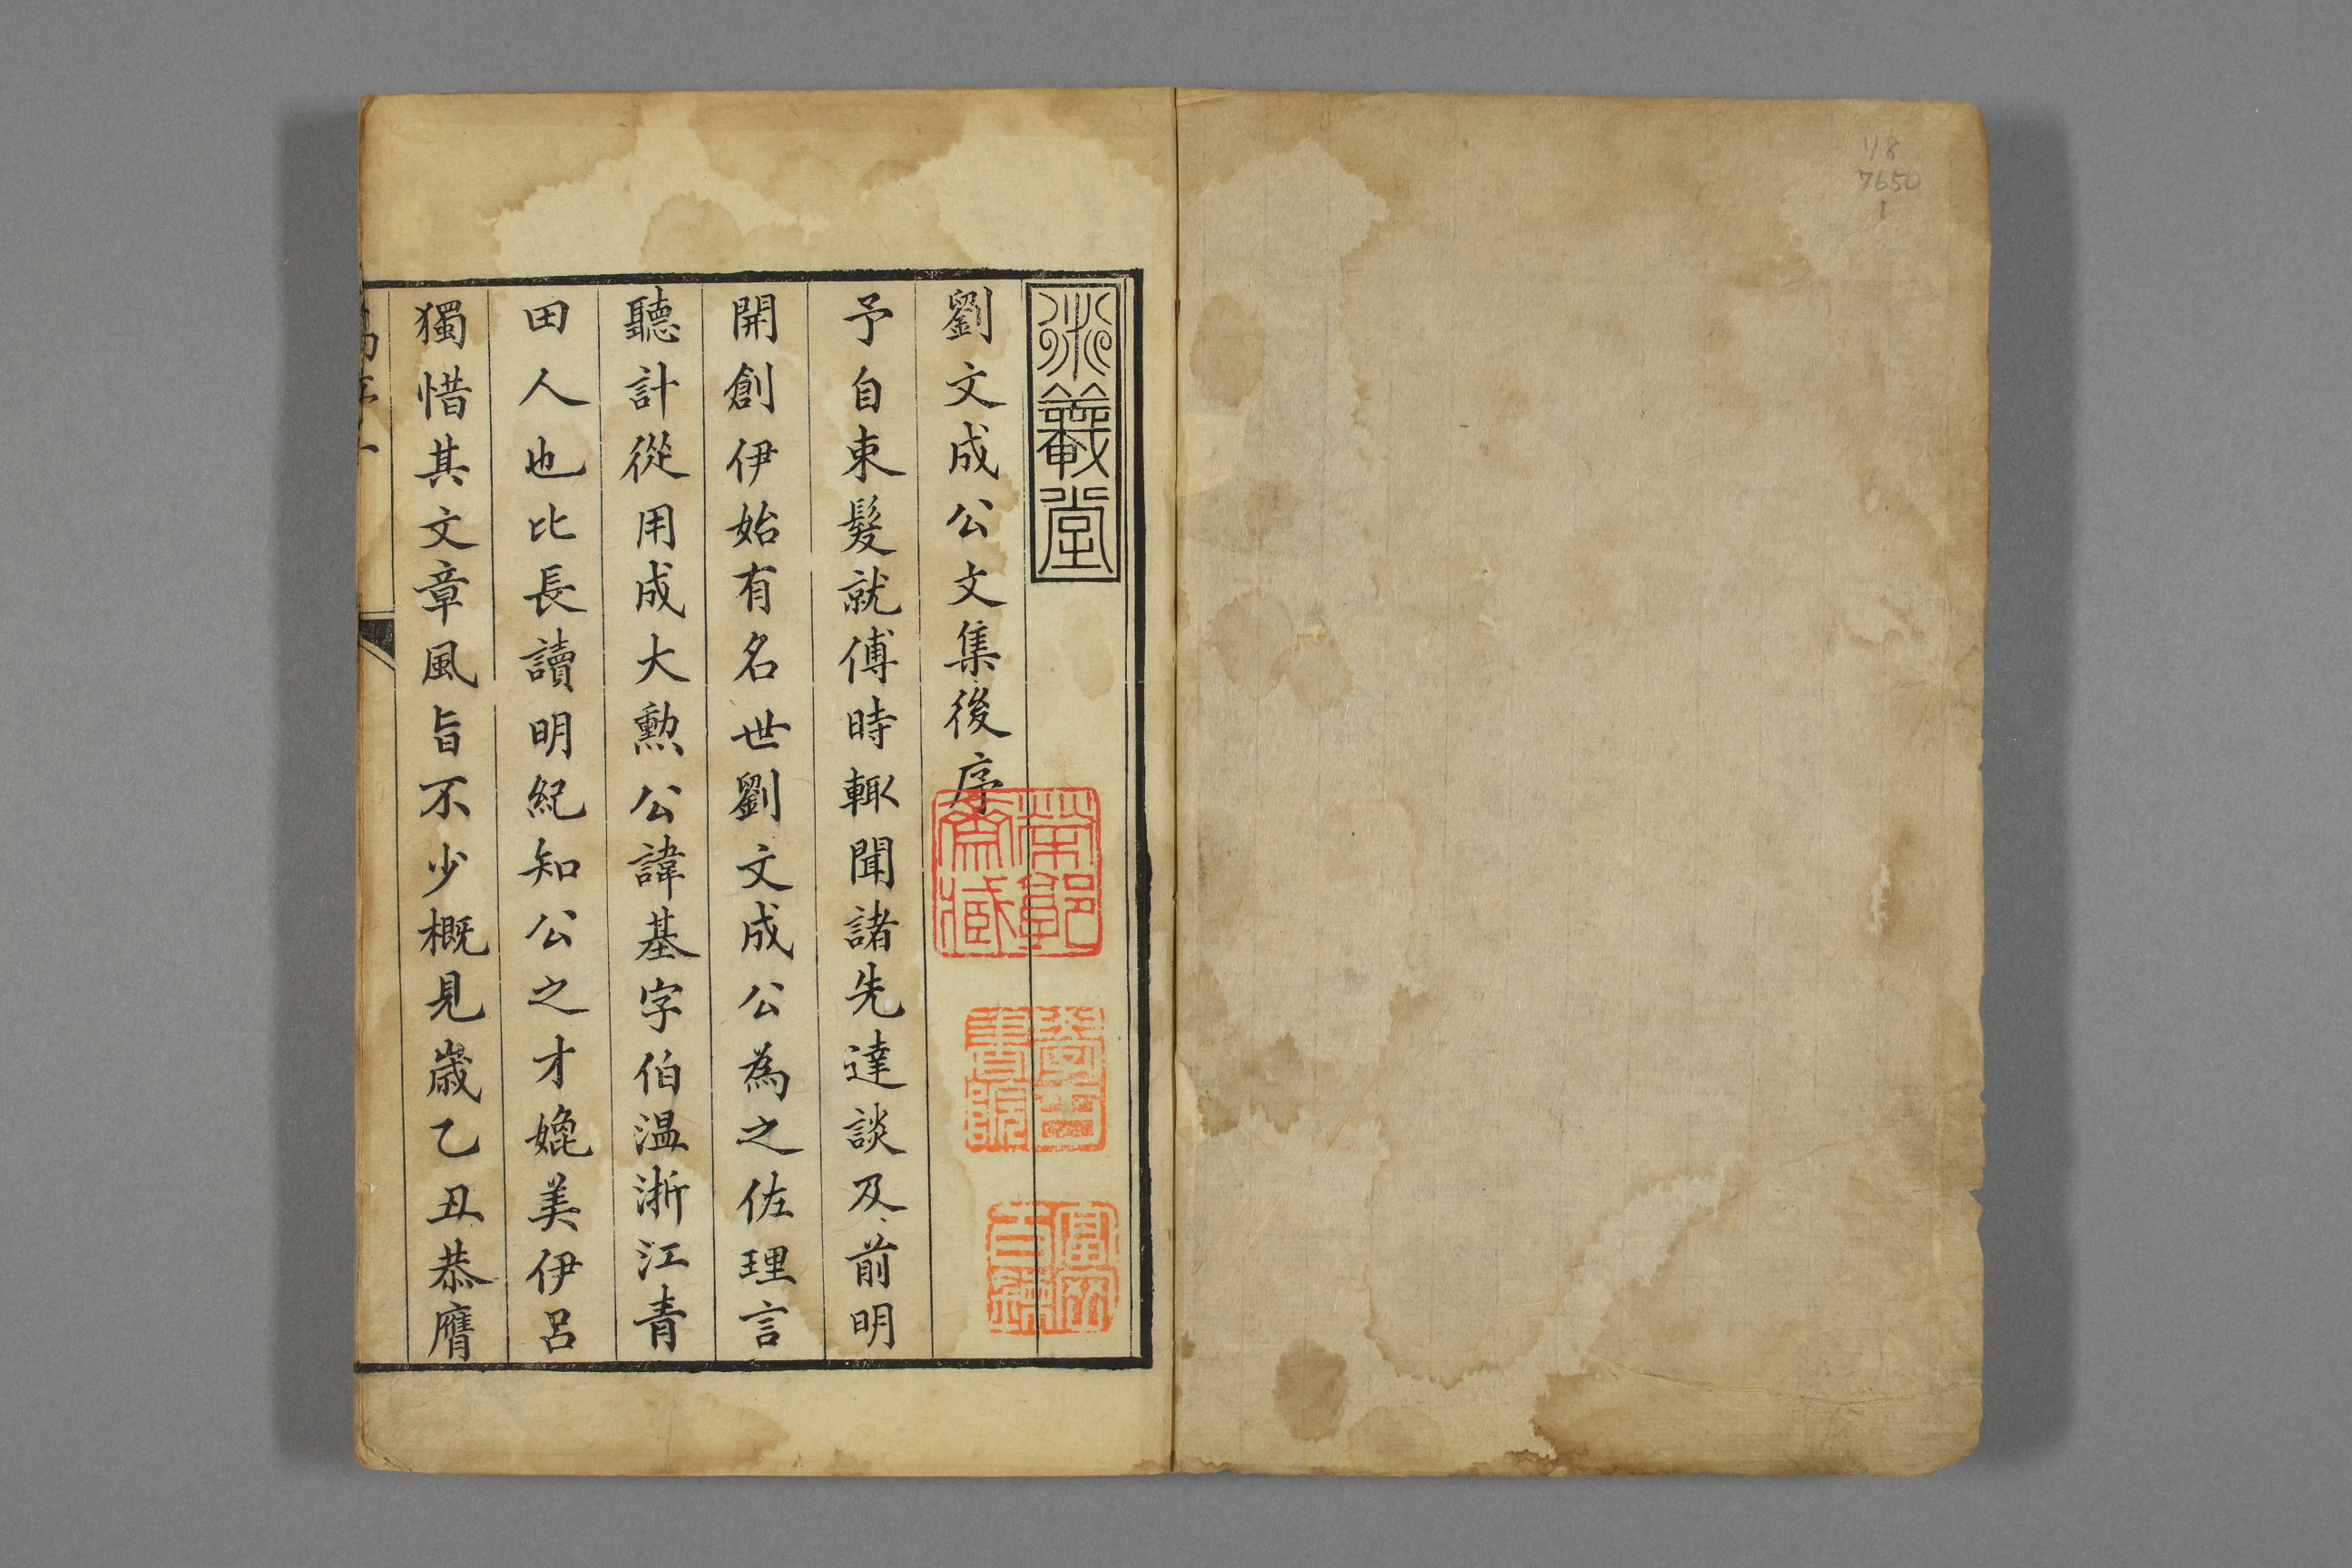 劉文成公文集後序
予自束髮就傅時輙聞諸先達談及前明
開創伊始有名世劉文成公為之佐理言
聽計從用成大勲公諱基字伯温浙江青
田人也比長讀明紀知公之才媲美伊呂
獨惜其文章風旨不少概見歲乙丑恭膺
7650
1